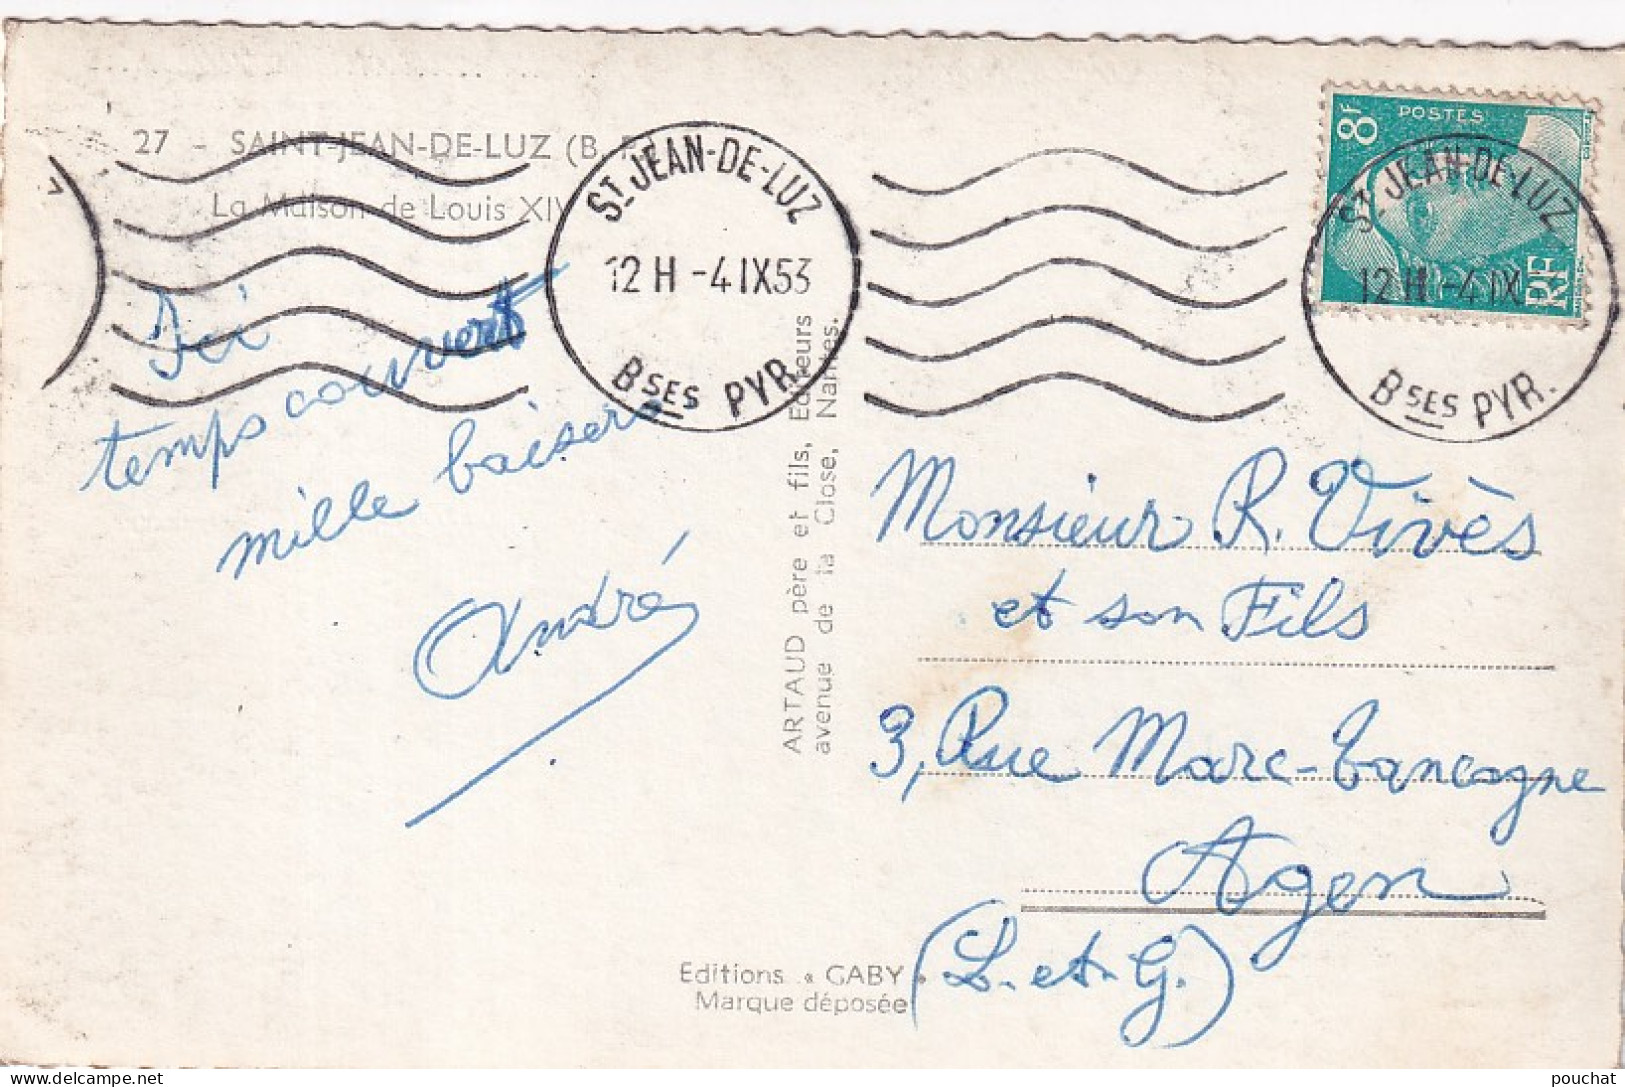 27 - SAINT-JEAN-DE-LUZ (B. P.)
La Maison de Louis XIV
Ici
temps couvert
mille baisers
André
ST JEAN-DE-LUZ
12 H -4 IX 53
BSES PYR.
ARTAUD père et fils, Editeurs
avenue de la Close, Nantes.
POSTES
8F
RF
ST JEAN-DE-LUZ
12 H -4 IX
BSES PYR.
Monsieur R. Vivès
et son Fils
3, Rue Marc-Tancogne
Agen
(L.-et-G.)
Editions « GABY »
Marque déposée
delcampe.net
pouchat